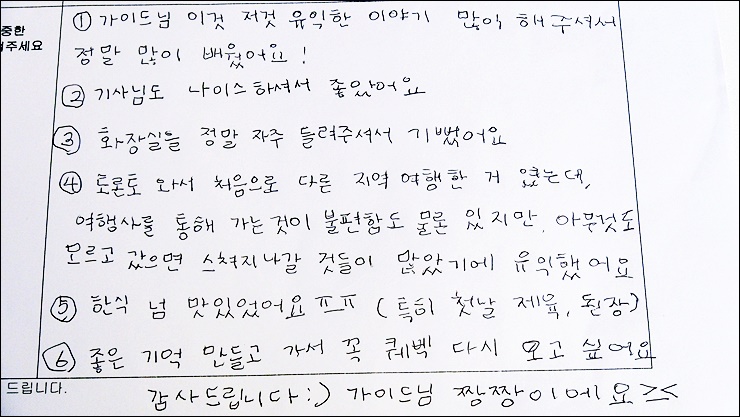 중한
어주세요
① 가이드님 이것 저것 유익한 이야기 많이 해주셔서
정말 많이 배웠어요!
② 기사님도 나이스하셔서 좋았어요
③ 화장실을 정말 자주 들려주셔서 기뻤어요
④ 토론토 와서 처음으로 다른 지역 여행한 거 였는데,
여행사를 통해 가는것이 불편함도 물론 있지만, 아무것도
모르고 갔으면 스쳐지나갈 것들이 많았기에 유익했어요
⑤ 한식 넘 맛있었어요 ㅠㅠ (특히 첫날 제육, 된장)
⑥ 좋은 기억 만들고 가서 꼭 퀘벡 다시 오고 싶어요
드립니다.
감사드립니다:) 가이드님 짱짱이에요><